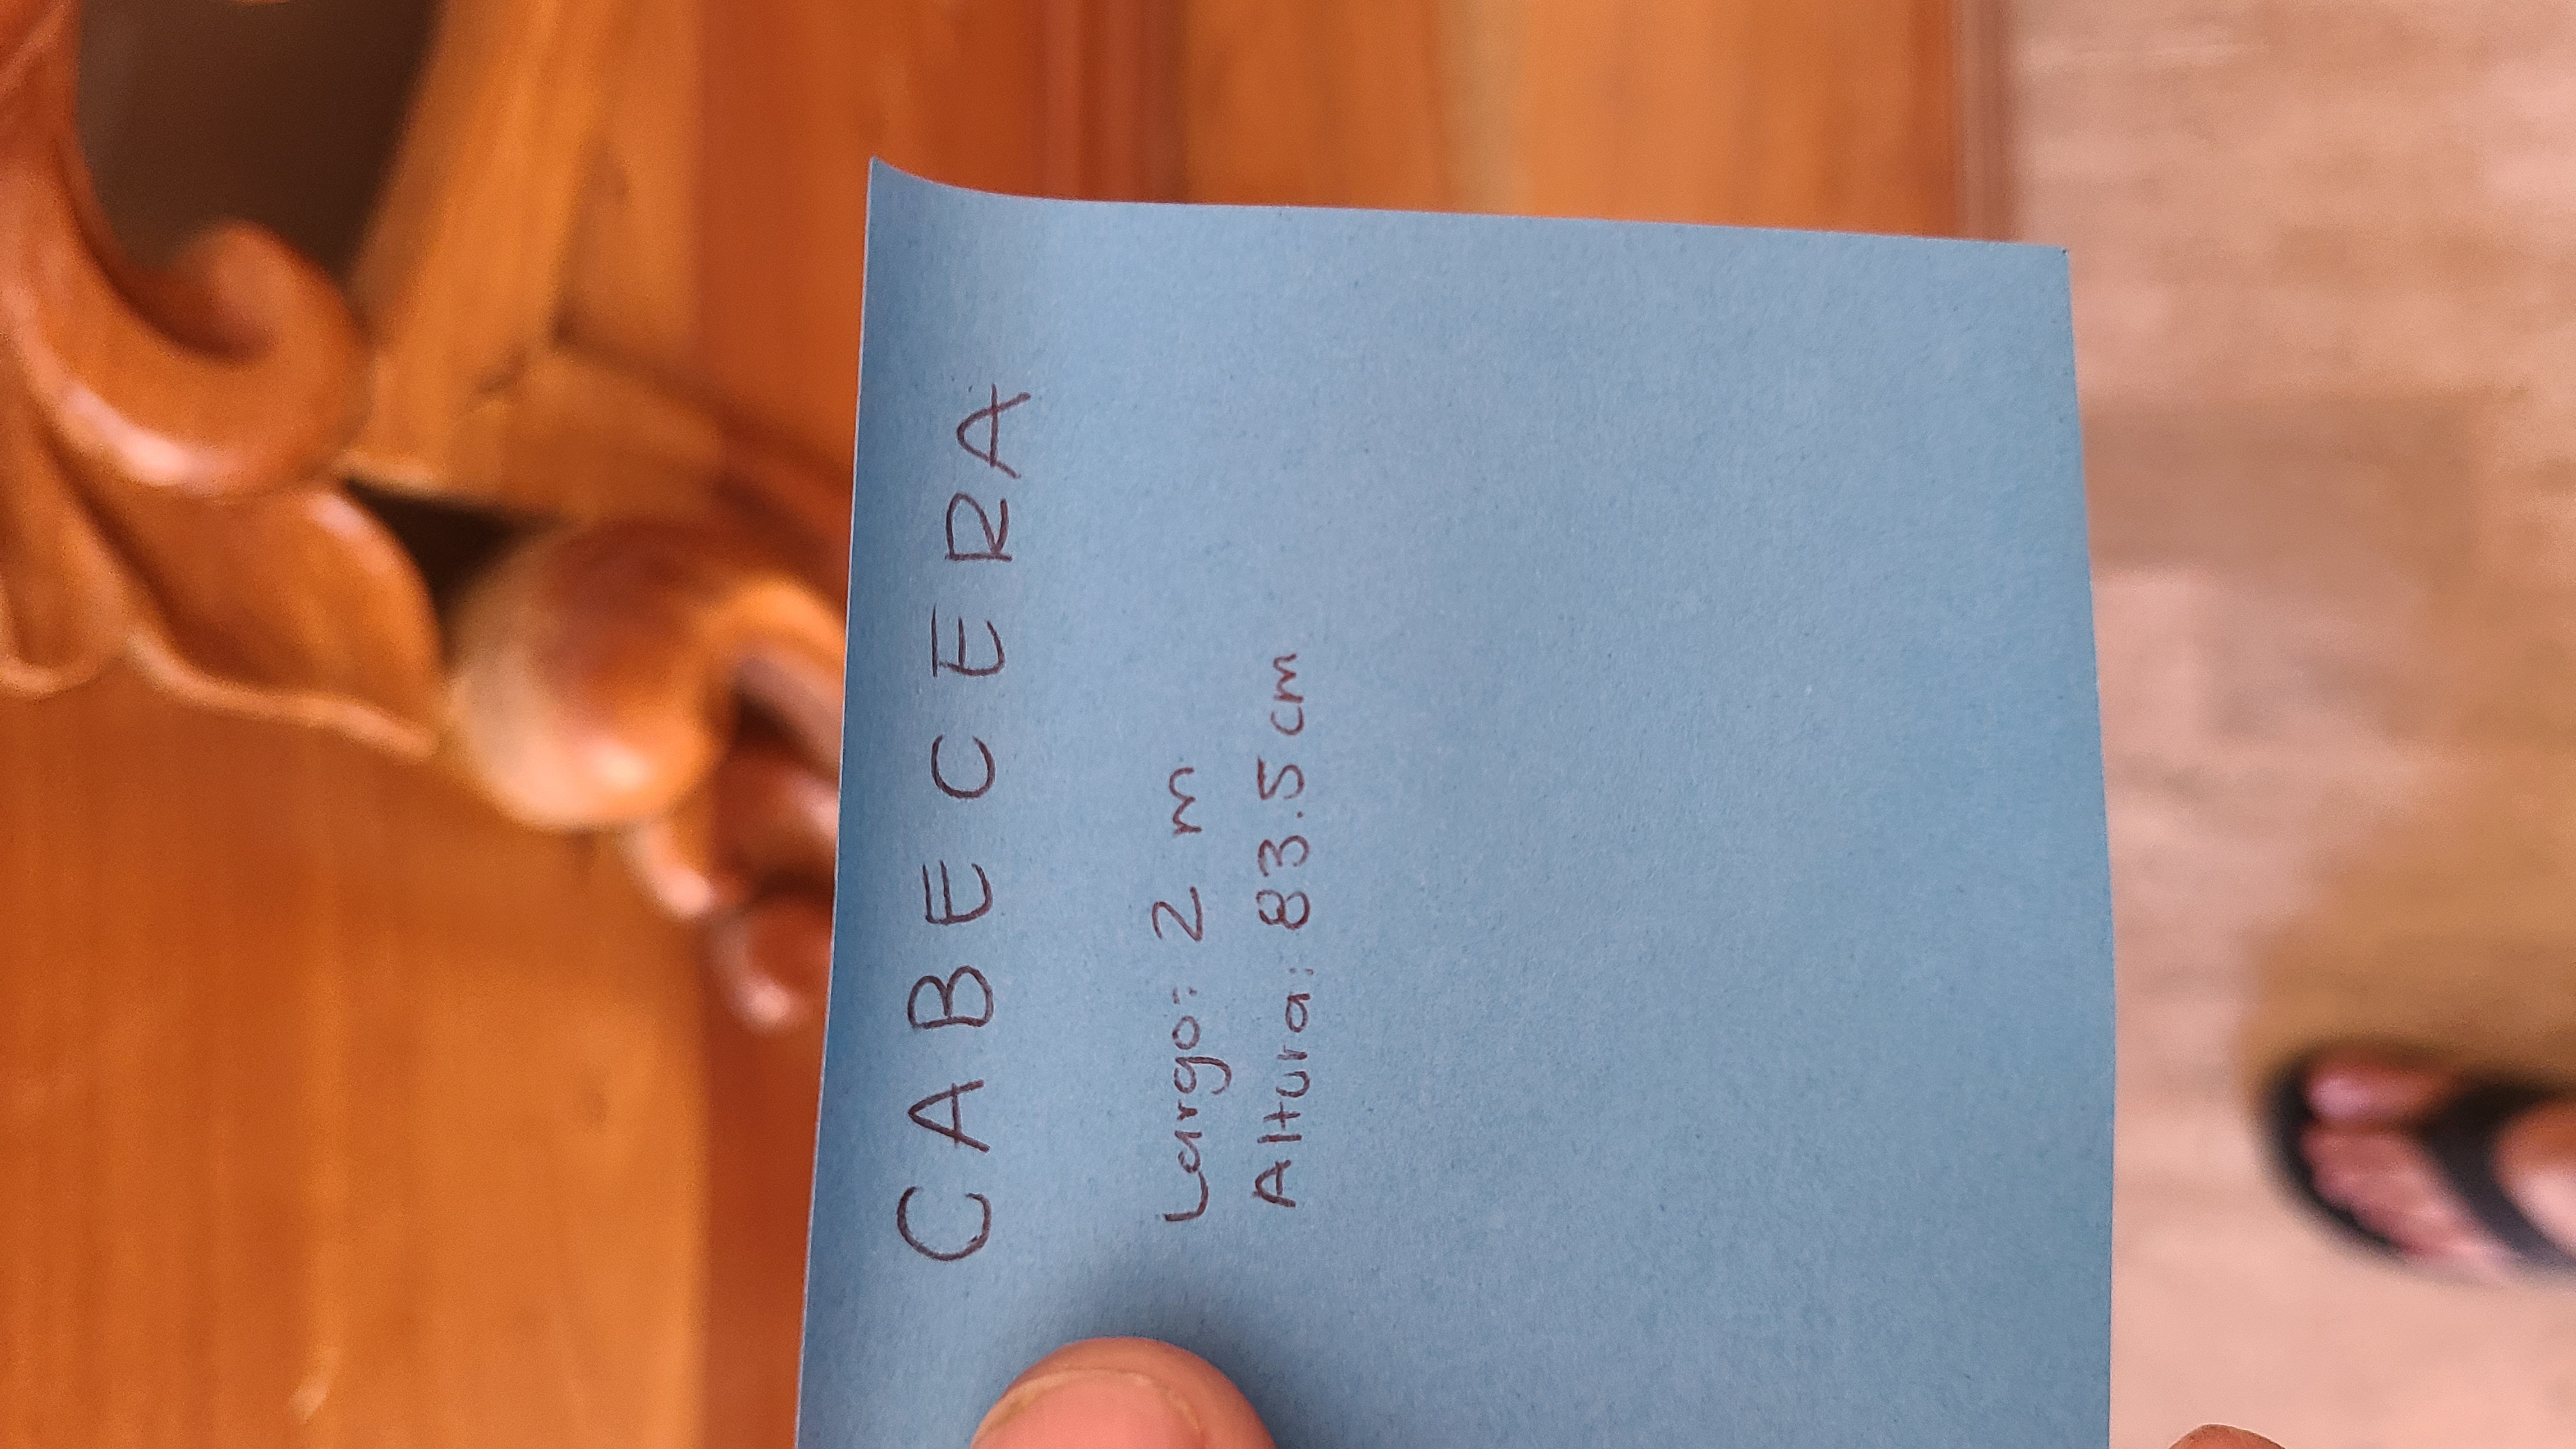 CABECERA
Largo: 2 m
Altura: 83.5 cm